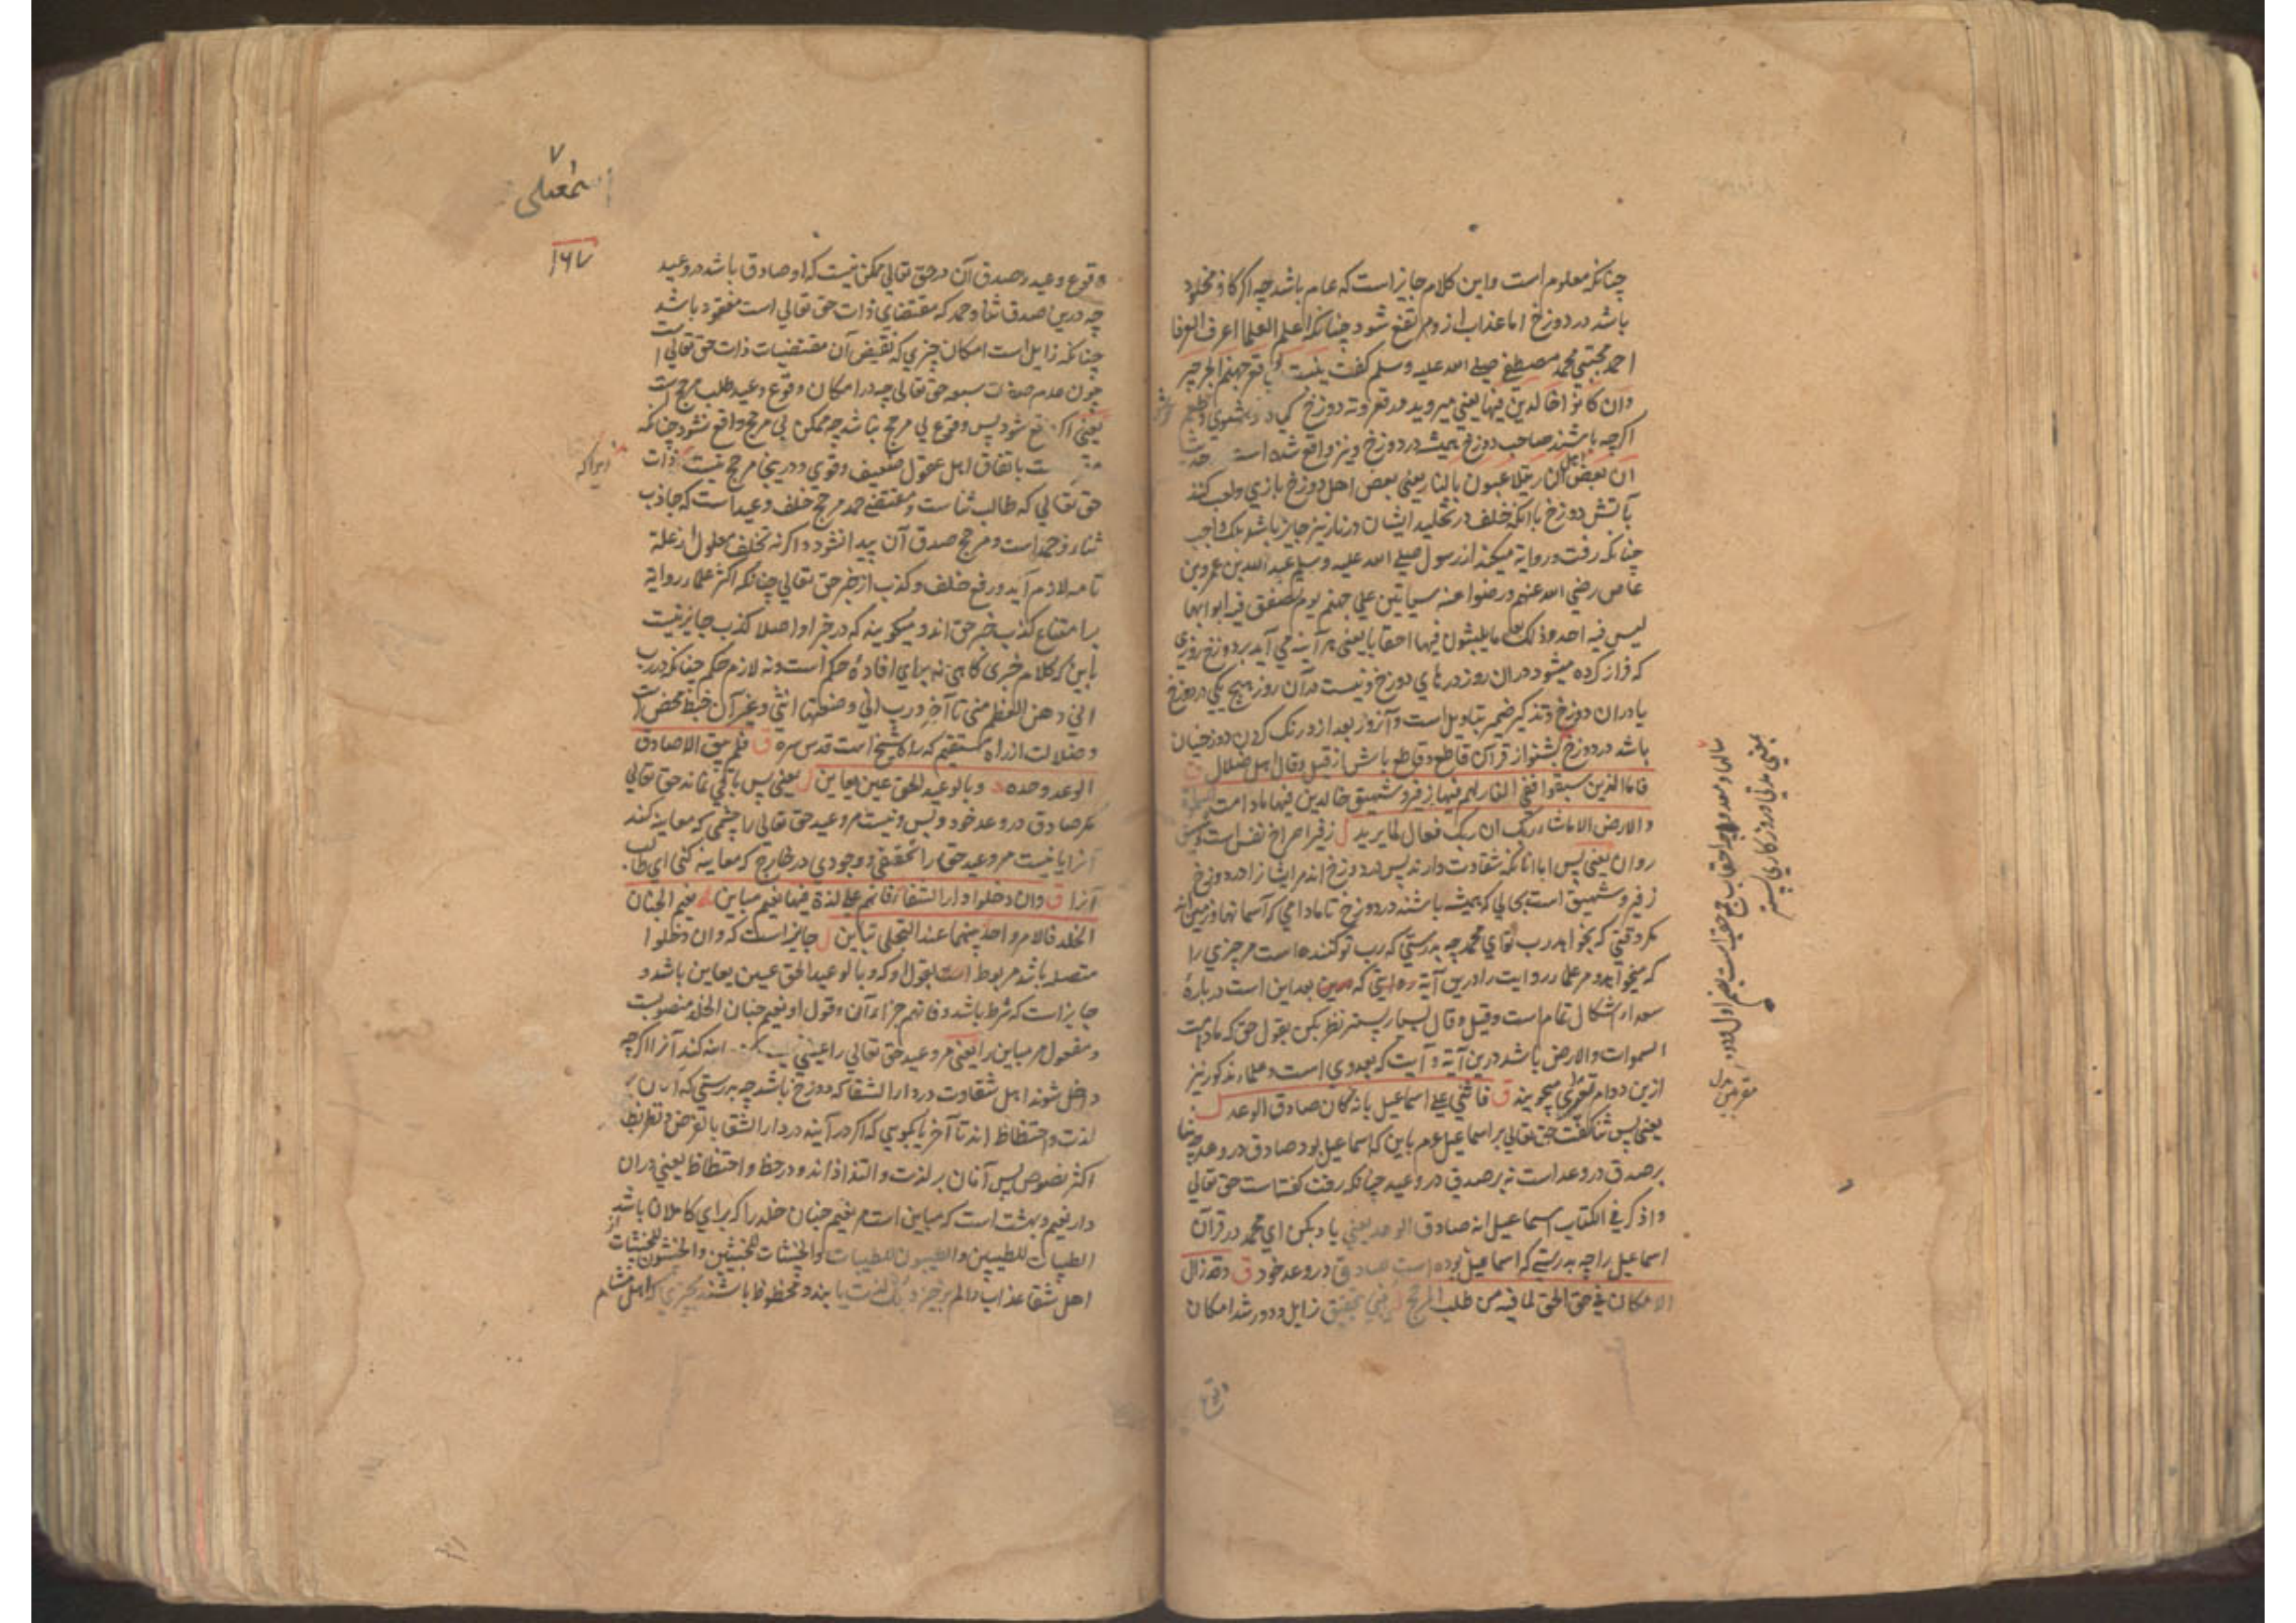 چنانکه معلوم است و این کلام جایز است که عام باشد چه اگر کافر مخلد
باشد در دوزخ اما عذاب از و مرتفع شود چنانکه اعلم العلما اعرف العرفا
احمد مجتبی محمد مصطفی صلی الله علیه وسلم گفت ینبت فی قعر جهنم الجرجیر
وان کانوا خالدین فیها یعنی میروید در قعر و ته دوزخ
اگرچه باشند صاحب دوزخ همیشه در دوزخ و نیز واقع شده است
ان بعض اهل النار یتلاعبون بالنار یعنی بعض اهل دوزخ بازی و لعب کنند
بآتش دوزخ با آنکه خلف در تخلید ایشان در نار نیز جایز باشد بلکه واجب
چنانکه رفت و روایة میکند از رسول صلی الله علیه وسلم عبد الله بن عمرو بن
عاص رضی الله عنهم و رضوا عنه سیاتین علی جهنم یوم تصفق فیه ابوابها
لیس فیه احد و ذلک بعد ما یلبثون فیها احقابا یعنی هر آینه می آید بر دوزخ روزی
که فراز کرده میشود در آن روز درهای دوزخ و نیست در آن روز هیچ یکی در دوزخ
یا در آن دوزخ و تذکیر ضمیر بتاویل است و آنروز بعد از درنگ کردن دوزخیان
باشد در دوزخ بشنو از قرآن قاطع و قاطع باش از قیل و قال اهل ضلال ق
فاما الذین سبقوا ففی النار لهم فیها زفیر و شهیق خالدین فیها مادامت السموات
والارض الا ما شاء ربک ان ربک فعال لما یرید ل زفیر اخراج نفس است و شهیق
روان یعنی پس اما آنانکه شقاوت دارند پس در دوزخ اند مر ایشانرا در دوزخ
زفیر و شهیق است بحالی که همیشه باشند در دوزخ تا مادامی که آسمانها و زمین اند
مگر وقتی که بخواهد رب تو ای محمد چه بدرستی که رب تو کننده است مر چیزی را
که میخواهد و مر علماء روایت را درین آیة و آیتی که بعد این است درباره
سعداء اشکال تمام است و قیل و قال بسیار پستر نظر بکن بقول حق که مادامت
السموات والارض باشد درین آیة و آیت که بعد وی است و علماء مذکور نیز
ازین دوام میجویند ق فاثنی علی اسماعیل بانه کان صادق الوعد ل
یعنی پس ثنا گفت حق تعالی بر اسماعیل عم باین که اسماعیل بود صادق در وعد چه ثنا
بر صدق در وعد است نه بر صدق در وعید چنانکه رفت گفتاست حق تعالی
واذکر فی الکتاب اسماعیل انه صادق الوعد یعنی یاد بکن ای محمد در قرآن
اسماعیل را چه بدرستی که اسماعیل بوده است صادق در وعد خود ق وقد زال
الامکان فی حق الحق لما فیه من طلب المرجح ل یعنی بتحقیق زایل و دور شد امکان
وقوع
اسمعیلی
۱۶۷
وقوع وعید و صدق آن در حق تعالی ممکن نیست که او صادق باشد در وعید
چه درین صدق ثنا و حمد که مقتضای ذات حق تعالی است مفقود باشد
چنانکه زایل است امکان چیزی که نقیض آن مقتضیات ذات حق تعالی است
چون عدم صفات سبعه حق تعالی چه در امکان وقوع وعید طلب مرجح است
یعنی اگر واقع شود پس وقوع بی مرجح نباشد چه ممکن بی مرجح واقع نشود چنانکه
باتفاق اهل عقول ضعیف و قوی و درینجا مرجح نیست ذات
زیرا که
حق تعالی که طالب ثنا است و مقتضی حمد مرجح خلف وعید است که جاذب
ثناء و حمد است و مرجح صدق آن پیدا نشود و اگر نه تخلف معلول از علة
تامه لازم آید و رفع خلف و کذب از خبر حق تعالی چنانکه اکثر علماء روایة
بر امتناع کذب خبر حق اند و میگویند که در خبر او اصلا کذب جایز نیست
باین که کلام خبری گاهی نه برای افاده حکم است و نه لازم حکم چنانکه در رب
انی وهن العظم منی تا آخر و رب انی وضعتها انثی و غیر آن خبط محض است
و ضلالت از راه مستقیم که راه شیخ است قدس سره ق فلم یبق الا صادق
الوعد وحده وبالوعید الحق عین یعاین ل یعنی پس باقی نماند حق تعالی
مگر صادق در وعد خود و بس و نیست مر وعید حق تعالی را چشمی که معاینه کند
آنرا یا نیست مر وعید حق را تحققی و وجودی در خارج که معاینه کنی ای طالب
آنرا ق وان دخلوا دار الشقاء فانهم علی لذة فیها نعیم مباین نعیم الجنان
الخلد فالامر واحد بینهما عند التجلی تباین ل جایز است که وان دخلوا
متصله باشد مربوط است بقول او که وبالوعید الحق عین یعاین باشد و
جایز است که شرط باشد و فانهم جزاء آن و قول او نعیم جنان الخلد منصوبست
و مفعول مر مباین را یعنی مر وعید حق تعالی را عینی نیست که معاینه کند آنرا اگرچه
داخل شوند اهل شقاوت در دار الشقا که دوزخ باشد چه بدرستی که آنان بر
لذت و احتظاظ اند تا آخر یا بگویی که اگر درآیند در دار الشقا
اکثر نصوص پس آنان بر لذت و التذاذ اند و در حظ و احتظاظ یعنی در آن
دار نعیم و بهشت است که مباین است مر نعیم جنان خلد را که برای کاملان باشد
الطیبات للطیبین والطیبون للطیبات والخبیثات للخبیثین والخبیثون للخبیثات
اهل شقا عذاب و الم برخیزد بلکه لذت یابند و محظوظ باشند بچیزی که اهل